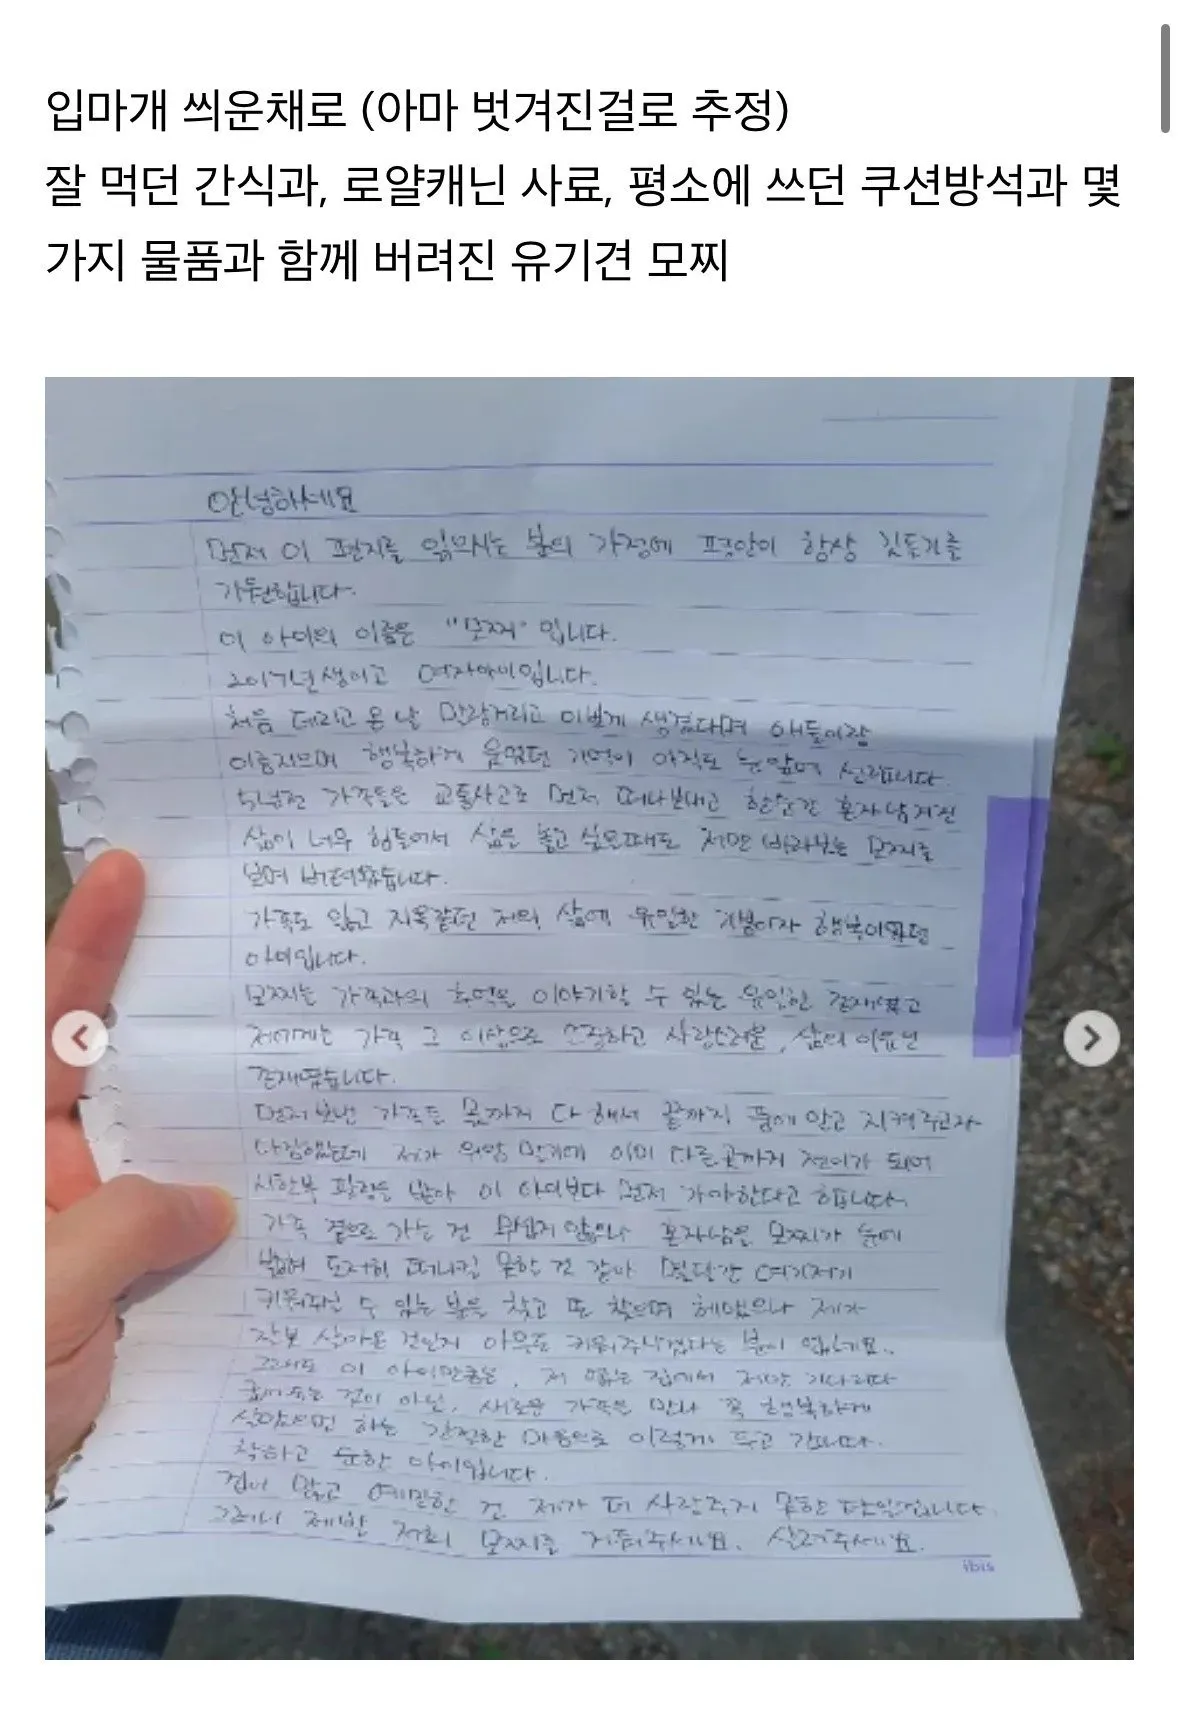 입마개 씌운채로 (아마 벗겨진걸로 추정)
잘 먹던 간식과, 로얄캐닌 사료, 평소에 쓰던 쿠션방석과 몇
가지 물품과 함께 버려진 유기견 모찌
안녕하세요
먼저 이 편지를 읽으시는 분의 가정에 평안이 항상 깃들기를
기원합니다.
이 아이의 이름은 "모찌" 입니다.
2017년생이고 여자아이입니다.
처음 데리고 온 날 말랑거리고 이쁘게 생겼다며 애들이랑
이름지으며 행복하게 웃었던 기억이 아직도 눈앞에 선합니다.
5년전 가족들은 교통사고로 먼저 떠나보내고 한순간 혼자 남겨진
삶이 너무 힘들어서 삶을 놓고 싶은때도 저만 바라보는 모찌를
보며 버텨왔습니다.
가족도 잃고 지옥같던 저의 삶에 유일한 희봉이자 행복이였던
아이입니다.
모찌는 가족과의 추억을 이야기할 수 있는 유일한 존재였고
저에게는 가족 그 이상으로 소중하고 사랑스러운, 삶의 이유인
존재였습니다.
먼저보낸 가족들 몫까지 다 해서 끝까지 품에 안고 지켜주고자
다짐했는데 제가 위암 말기에 이미 다른곳까지 전이가 되어
시한부 판정을 받아 이 아이보다 먼저 가야한다고 합니다.
가족 곁으로 가는 건 무섭지 않으나 혼자남을 모찌가 눈에
밟혀 도저히 떠나질 못할 것 같아 몇달간 여기저기
키워주실 수 있는 분을 찾고 또 찾으며 헤맸으나 제가
잘못 살아온 것인지 아무도 키워주시겠다는 분이 없네요..
그래도 이 아이만큼은, 저 없는 집에서 저만 기다리다
굶어죽는 것이 아닌, 새로운 가족을 만나 꼭 행복하게
살았으면 하는 간절한 마음으로 이렇게 두고 갑니다.
착하고 순한 아이입니다.
겁이 많고 예민한 건 제가 더 사랑주지 못한 탓입니다.
그러니 제발 저희 모찌를 거둬주세요. 살려주세요.
ibis